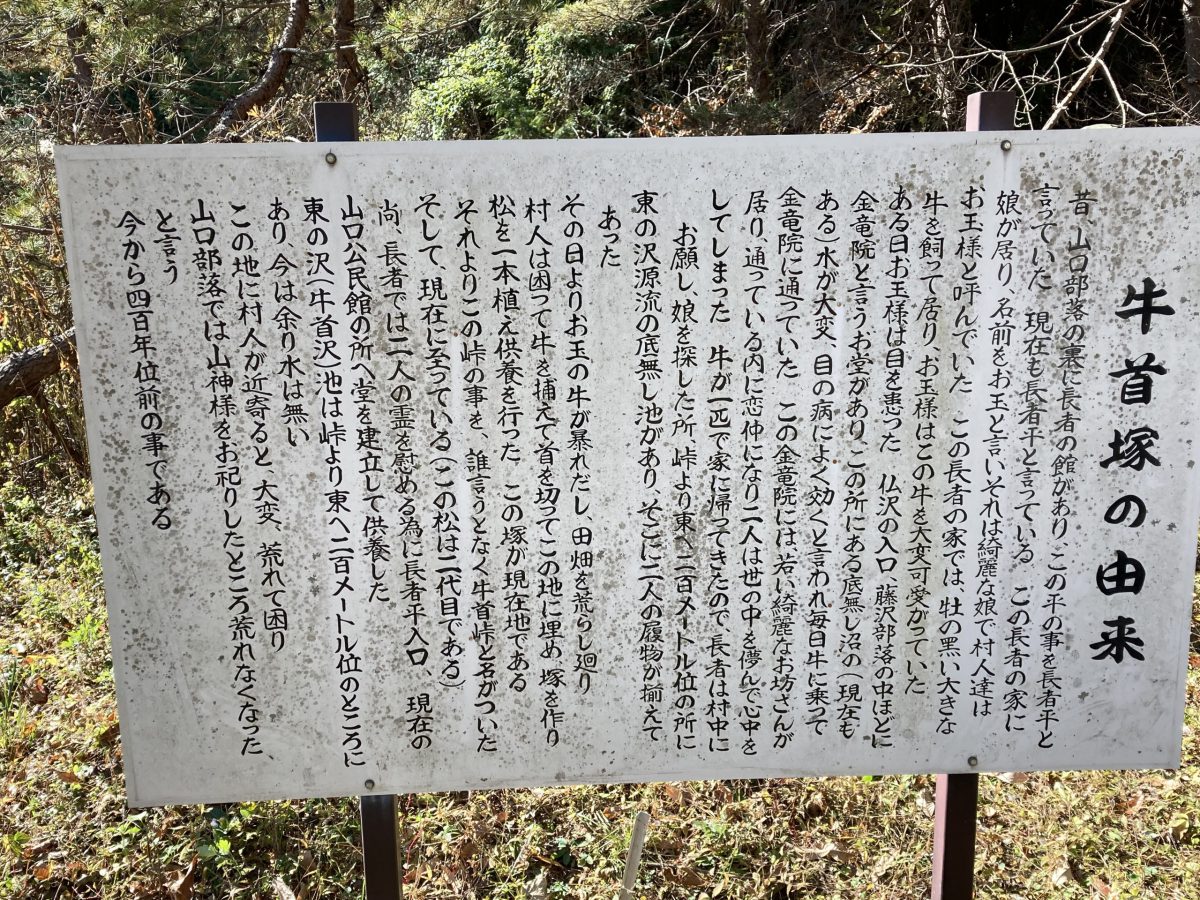 牛首塚の由来
昔山口部落の裏に長者の館があり、この平の事を長者平と
言っていた 現在も長者平と言っている この長者の家に
娘が居り、名前をお玉と言いそれは綺麗な娘で村人達は
お玉様と呼んでいた この長者の家では、牡の黒い大きな
牛を飼って居り、お玉様はこの牛を大変可愛がっていた
ある日お玉様は目を患った 仏沢の入口 藤沢部落の中ほどに
金竜院と言うお堂があり、この所にある底無し沼の(現在も
ある)水が大変、目の病によく効くと言われ毎日牛に乗って
金竜院に通っていた この金竜院には若い綺麗なお坊さんが
居り、通っている内に恋仲になり二人は世の中を儚んで心中を
してしまった 牛が一匹で家に帰ってきたので、長者は村中に
お願し、娘を探した所、峠より東へ二百メートル位の所に
東の沢源流の底無し池があり、そこに二人の履物が揃えて
あった
その日よりお玉の牛が暴れだし、田畑を荒らし廻り
村人は困って牛を捕えて首を切ってこの地に埋め塚を作り
松を一本植え供養を行った この塚が現在地である
それよりこの峠の事を、誰言うとなく牛首峠と名がついた
そして、現在に至っている(この松は二代目である)
尚、長者では二人の霊を慰める為に長者平入口、現在の
山口公民館の所へ堂を建立して供養した
東の沢(牛首沢)池は峠より東へ二百メートル位のところに
あり、今は余り水は無い
この地に村人が近寄ると、大変、荒れて困り
山口部落では山神様をお祀りしたところ荒れなくなった
と言う
今から四百年位前の事である